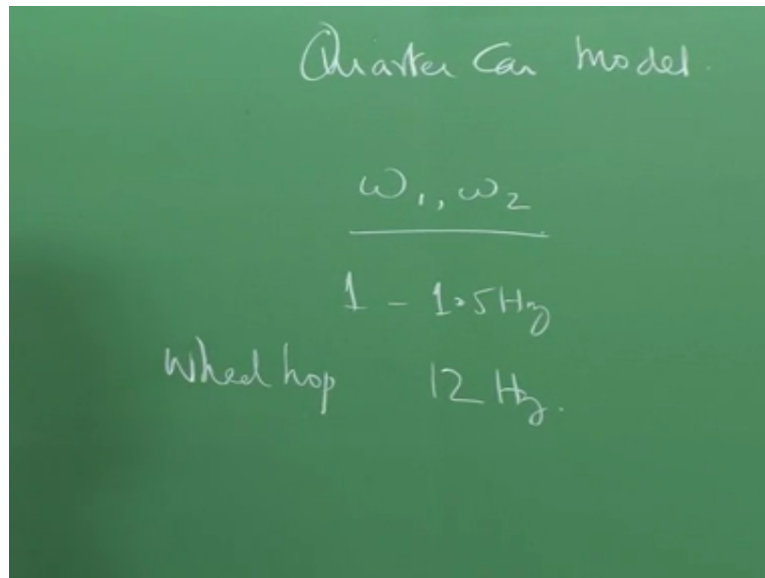 Quarter Car Model.
ω₁, ω₂
1 - 1.5Hz
Wheel hop 12 Hz.